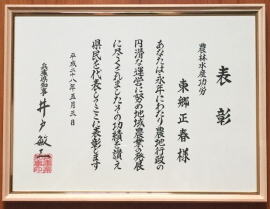 表彰
農林水産功労
東郷正春様
あなたは永年にわたり農地行政の
円滑な運営に努め地域農業の発展
に尽くされましたその功績を讃え
県民を代表してここに表彰します
平成二十八年五月三日
兵庫県知事 井戸敏三